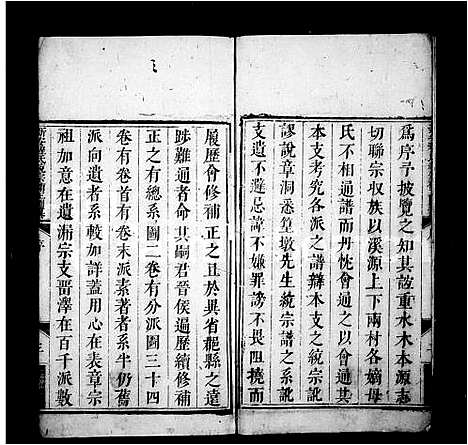 為序予披覽之知其誼重水木本源志
切聯宗収族以溪源上下兩村各嫡毋
氏不相通譜而丹忱會通之以會通其
本支考究各派之譜辯本支之統宗訛
謬說章洞悉篁墩先生統宗譜之系訛
支遺不避忌諱不嫌罪謗不畏阻撓而
履歷會修補正之且於異省郡縣之遠
跡難通者命其嗣君音侯遍歷續修補
正之有總系圖二卷有分派圖三十四
卷有卷首有卷末派素著者系半仍舊
派向遺者系較加詳蓋用心在表章宗
祖加意在遺漏宗支晋澤在百千派數